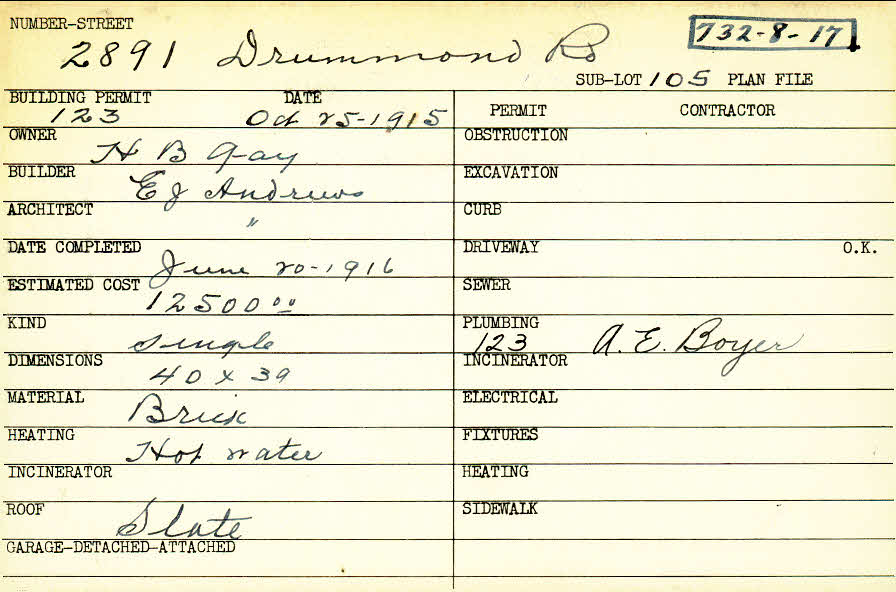 NUMBER-STREET
2891 Drummond Rd
732-8-17
SUB-LOT 105 PLAN FILE
BUILDING PERMIT DATE
123 Oct 25-1915
OWNER
H B Gay
BUILDER
E J Andrews
ARCHITECT
"
DATE COMPLETED
June 20-1916
ESTIMATED COST
12500 00
KIND
single
DIMENSIONS
40 x 39
MATERIAL
Brick
HEATING
Hot water
INCINERATOR
ROOF
Slate
GARAGE-DETACHED-ATTACHED
PERMIT CONTRACTOR
OBSTRUCTION
EXCAVATION
CURB
DRIVEWAY O.K.
SEWER
PLUMBING
123 A. E. Boyer
INCINERATOR
ELECTRICAL
FIXTURES
HEATING
SIDEWALK